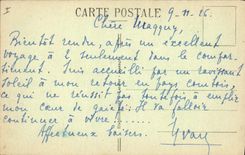 CARTE POSTALE
9-11-26.
Chère Maggy,
Bientôt rendu, après un excellent
voyage à 2 seulement dans le compar-
timent. Suis accueilli par un ravissant
soleil à mon retour en pays comtois,
ce qui ne réussit pas toutefois à emplir
mon cœur de gaieté. Il va falloir
continuer à vivre.....
Affectueux baisers.